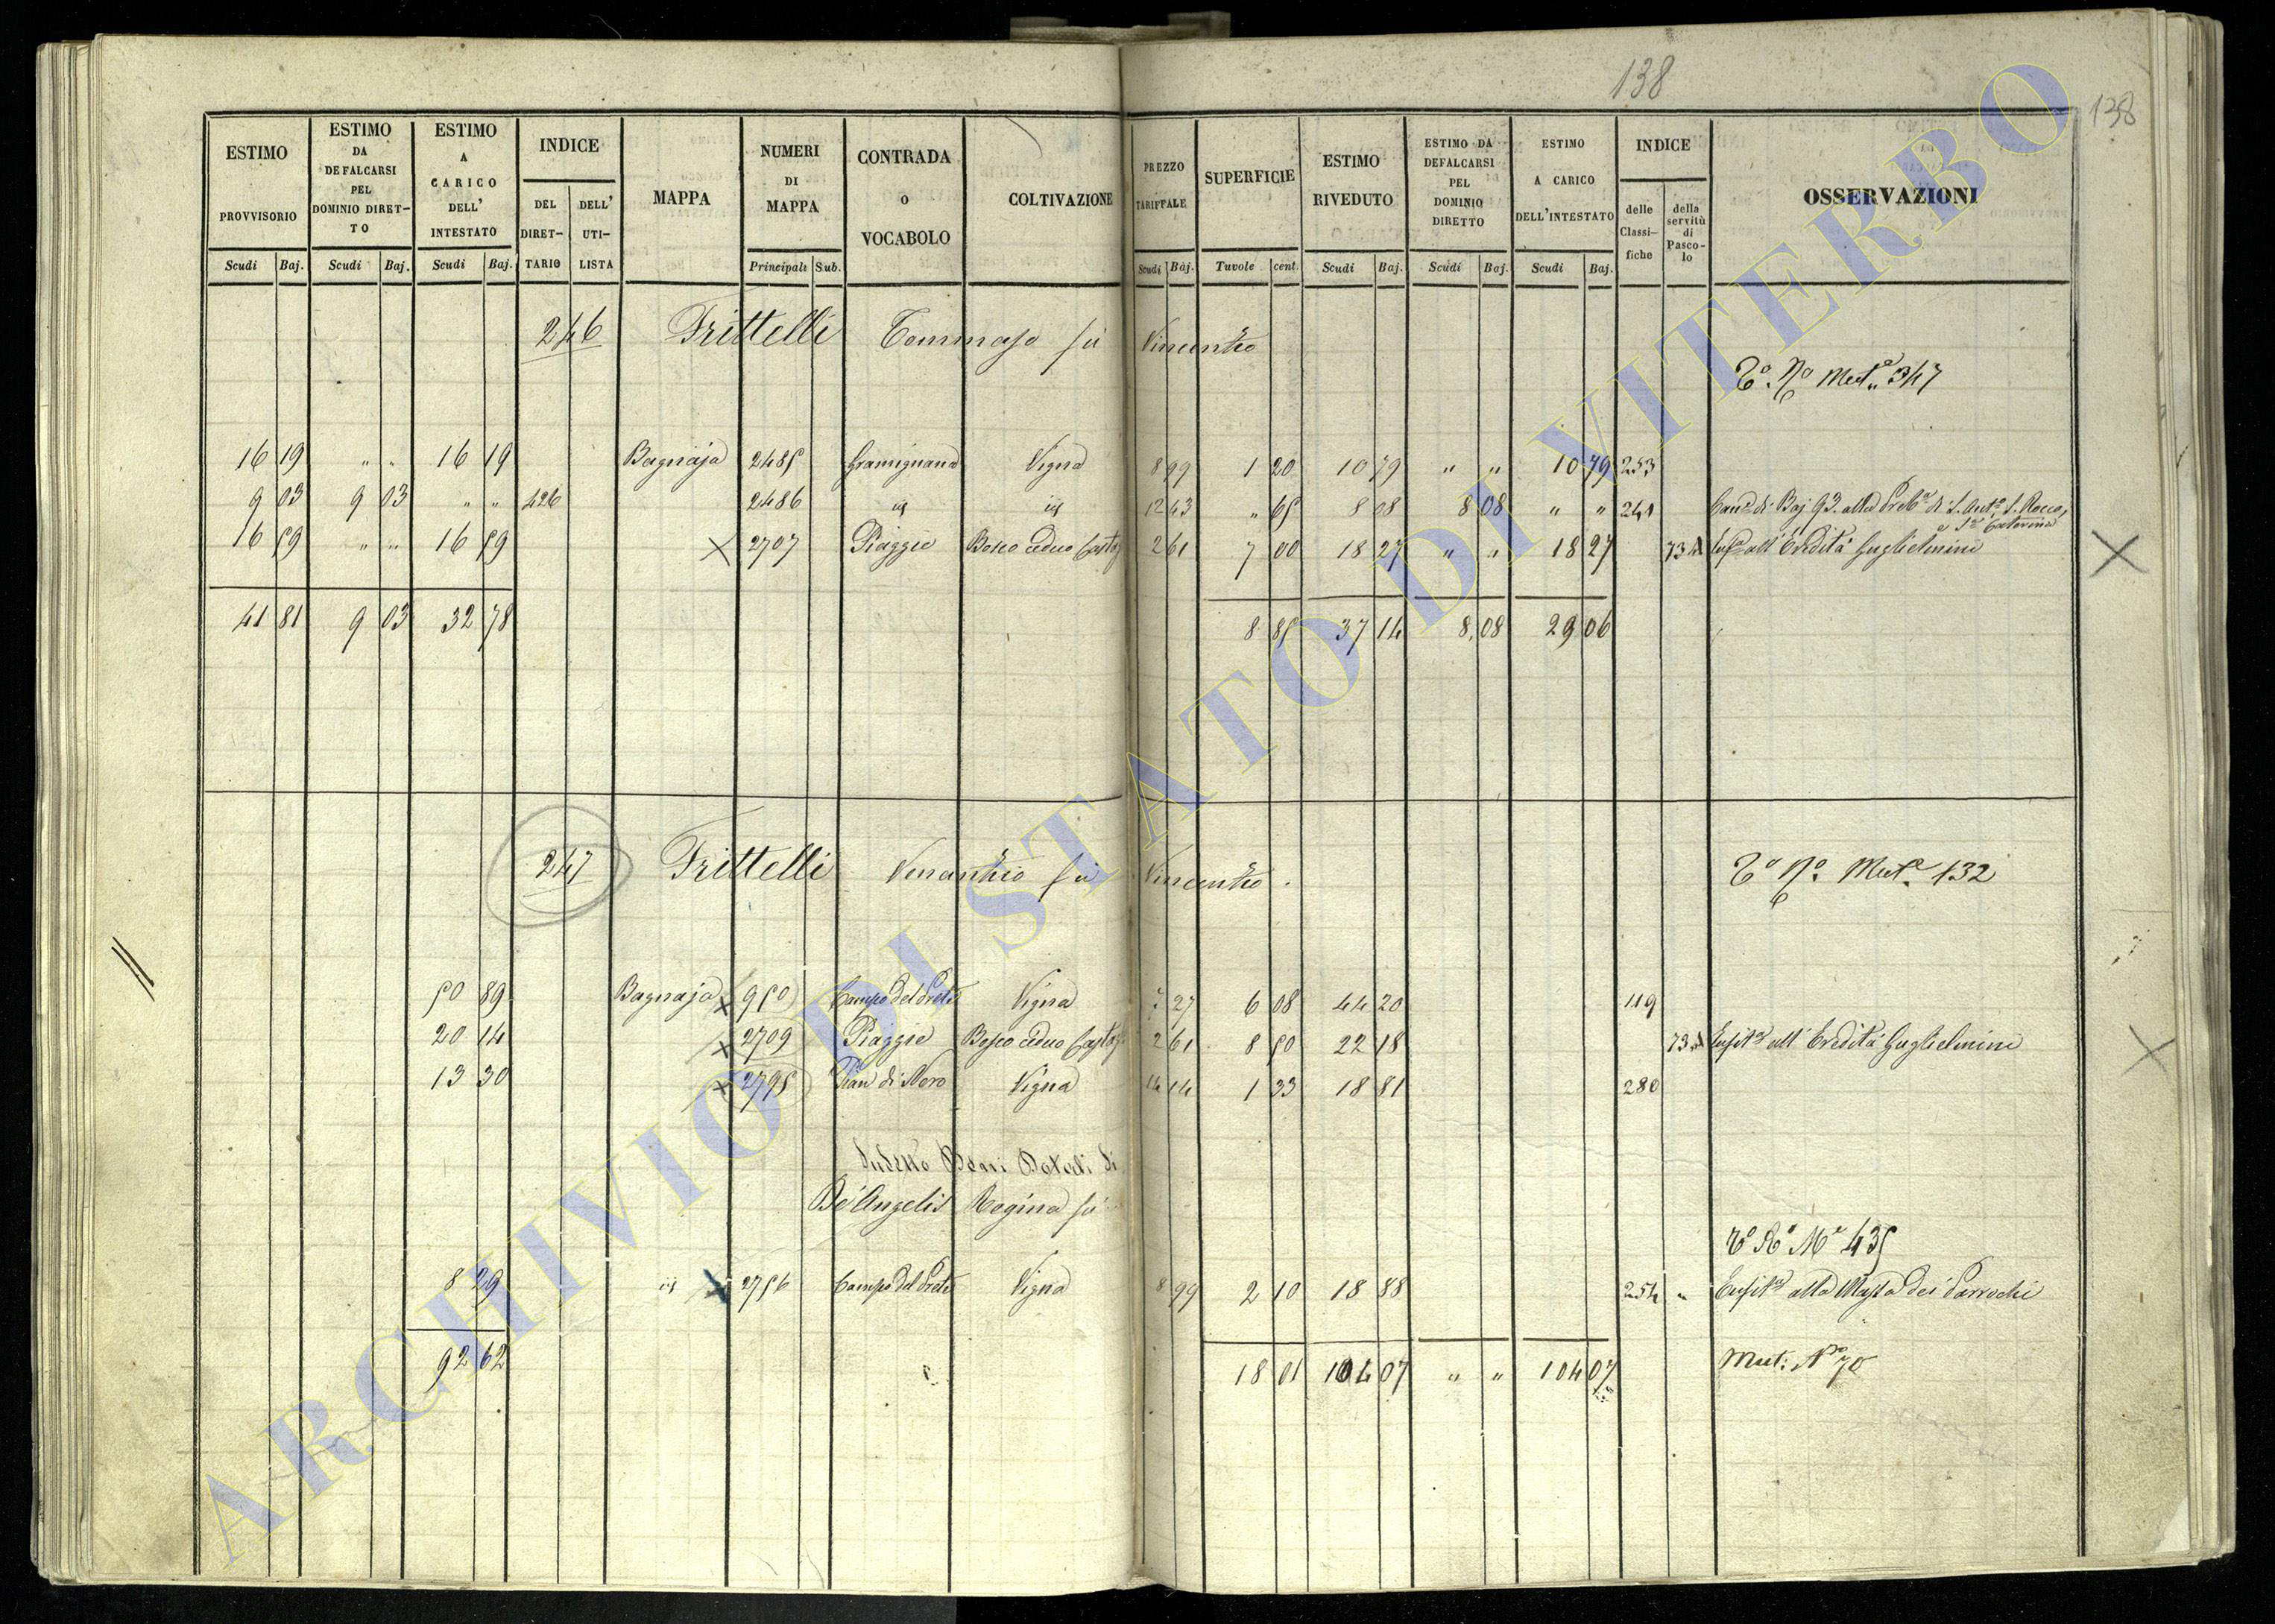 138
138
ESTIMO PROVVISORIO Scudi Baj.
ESTIMO DA DEFALCARSI PEL DOMINIO DIRETTO Scudi Baj.
ESTIMO A CARICO DELL' INTESTATO Scudi Baj.
INDICE DEL DIRETTARIO DELL' UTILISTA
MAPPA
NUMERI DI MAPPA Principali Sub.
CONTRADA O VOCABOLO
COLTIVAZIONE
PREZZO TARIFFALE Scudi Baj.
SUPERFICIE Tavole cent.
ESTIMO RIVEDUTO Scudi Baj.
ESTIMO DA DEFALCARSI PEL DOMINIO DIRETTO Scudi Baj.
ESTIMO A CARICO DELL'INTESTATO Scudi Baj.
INDICE delle Classifiche della servitù di Pascolo
OSSERVAZIONI
246 Frittelli Tommaso fù Vincenzo
Mut. 347
16 19 " " 16 19 Bagnaja 2485 Gramignana Vigna 8 99 1 20 10 79 " " 10 79 253
9 03 9 03 " " 426 2486 id id 12 43 " 65 8 08 8 08 " " 241 Can.e di Baj 93. alla Preb.a di S. Ant.o, S. Rocco, e S.a Caterina
16 59 " " 16 59 X 2707 Piaggie Bosco ceduo Casta 2 61 7 00 18 27 " " 18 27 73 all' Eredità Guglielmini X
41 81 9 03 32 78 8 85 37 14 8,08 29 06
247 Frittelli Venanzio fù Vincenzo.
Mut. 132
50 89 Bagnaja X 950 Campo del Prete Vigna 7 27 6 08 44 20 119
20 14 X 2709 Piaggie Bosco ceduo Casta 2 61 8 50 22 18 73 Enfit.a all' Eredità Guglielmini X
13 30 X 2795 Pian di Nero Vigna 14 14 1 33 18 81 280
Sudetto Beni Dotali di
De Angelis Regina fù
435
8 29 id X 2756 Campo del Prete Vigna 8 99 2 10 18 88 254 " Enfit.a alla Massa dei Parrochi
92 62 18 01 104 07 " " 104 07 Mut: N.o 70
ARCHIVIO DI STATO DI VITERBO